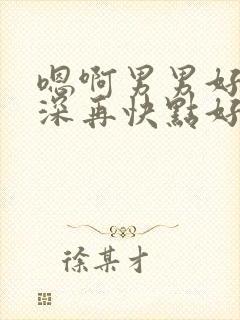 嗯啊男男好
深再快點好
徐某才